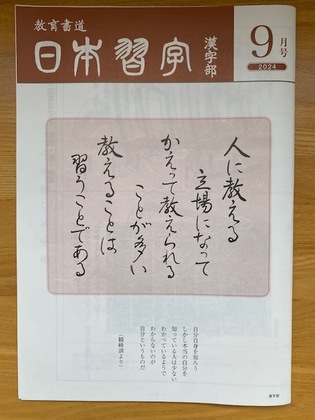 教育書道
日本習字
漢字部
9月号
2024
人に教える
立場になって
かえって教えられる
ことが多い
教えることは
習うことである
自分自身を知ろう
しかし本当の自分を
知っている人は少ない
わかっているようで
わからないのが
自分というものだ
(観峰訓より)
漢字部